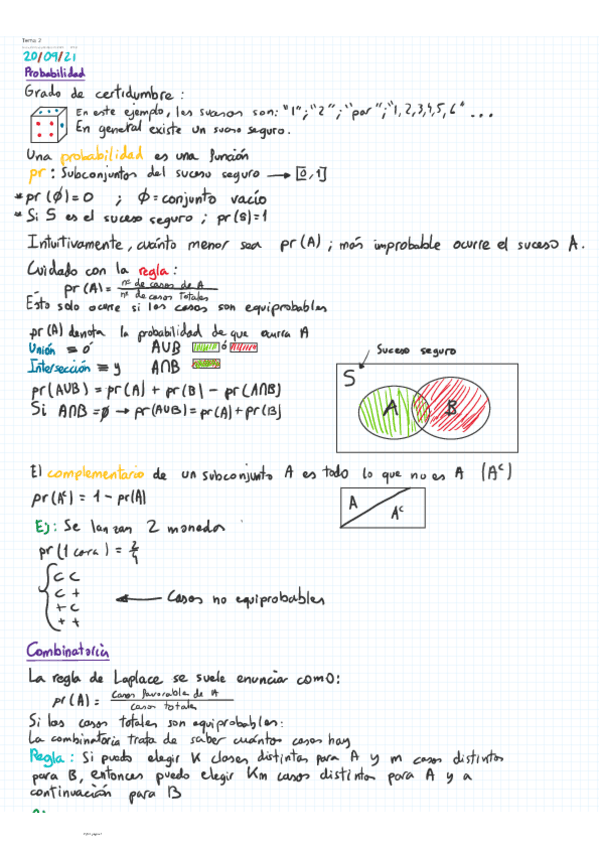 Tema 2
20/09/21
Probabilidad
Grado de certidumbre:
En este ejemplo, los sucesos son: "1"; "2"; "par"; "1,2,3,4,5,6" ...
En general existe un suceso seguro.
Una probabilidad es una función
pr: Subconjuntos del suceso seguro → [0,1]
* pr(∅)=0 ; ∅=conjunto vacío
* Si S es el suceso seguro; pr(S)=1
Intuitivamente, cuánto menor sea pr(A); más improbable ocurre el suceso A.
Cuidado con la regla:
pr(A) = nº de casos de A / nº de casos totales
Esto solo ocurre si los casos son equiprobables
pr(A) denota la probabilidad de que ocurra A
Unión ≡ ó A∪B ó
Intersección ≡ y A∩B
Suceso seguro
S
A
B
pr(A∪B) = pr(A) + pr(B) - pr(A∩B)
Si A∩B=∅ → pr(A∪B)=pr(A)+pr(B)
El complementario de un subconjunto A es todo lo que no es A (Aᶜ)
pr(Aᶜ) = 1 - pr(A)
A
Aᶜ
Ej: Se lanzan 2 monedas
pr(1 cara) = 2/4
c c
c +
+ c
+ +
← Casos no equiprobables
Combinatoria
La regla de Laplace se suele enunciar como:
pr(A) = casos favorable de A / casos totales
Si los casos totales son equiprobables:
La combinatoria trata de saber cuántos casos hay
Regla: Si puedo elegir K clases distintas para A y m casos distintos
para B, entonces puedo elegir Km casos distintos para A y a
continuación para B